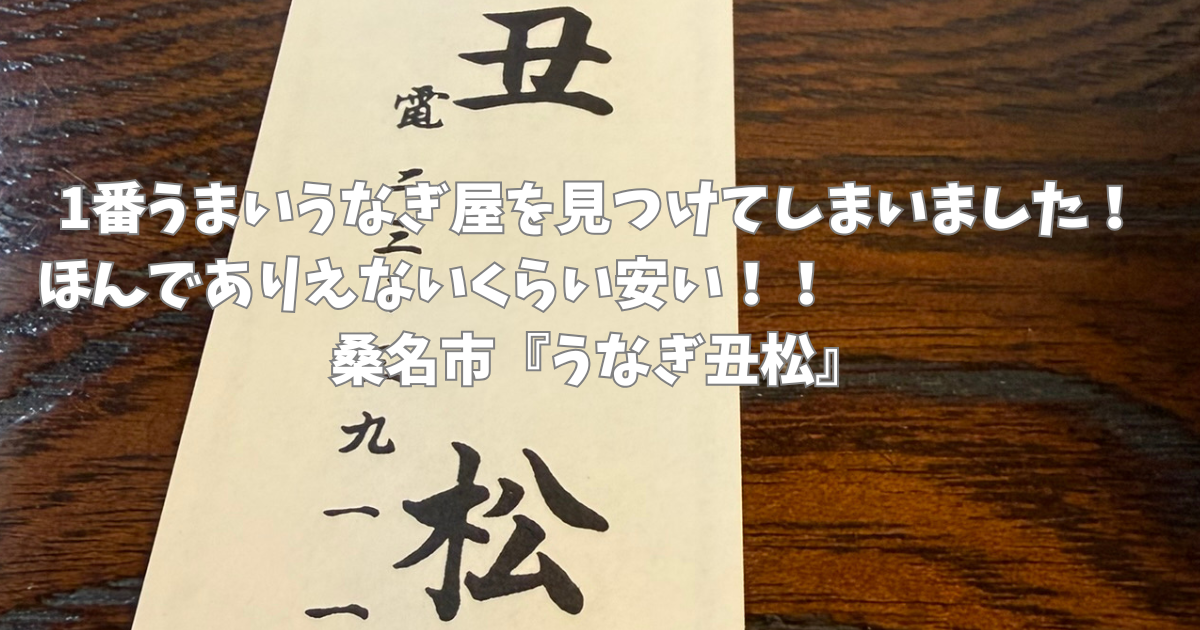 1番うまいうなぎ屋を見つけてしまいました！
ほんでありえないくらい安い！！
桑名市『うなぎ丑松』
丑松
電二三
九一一